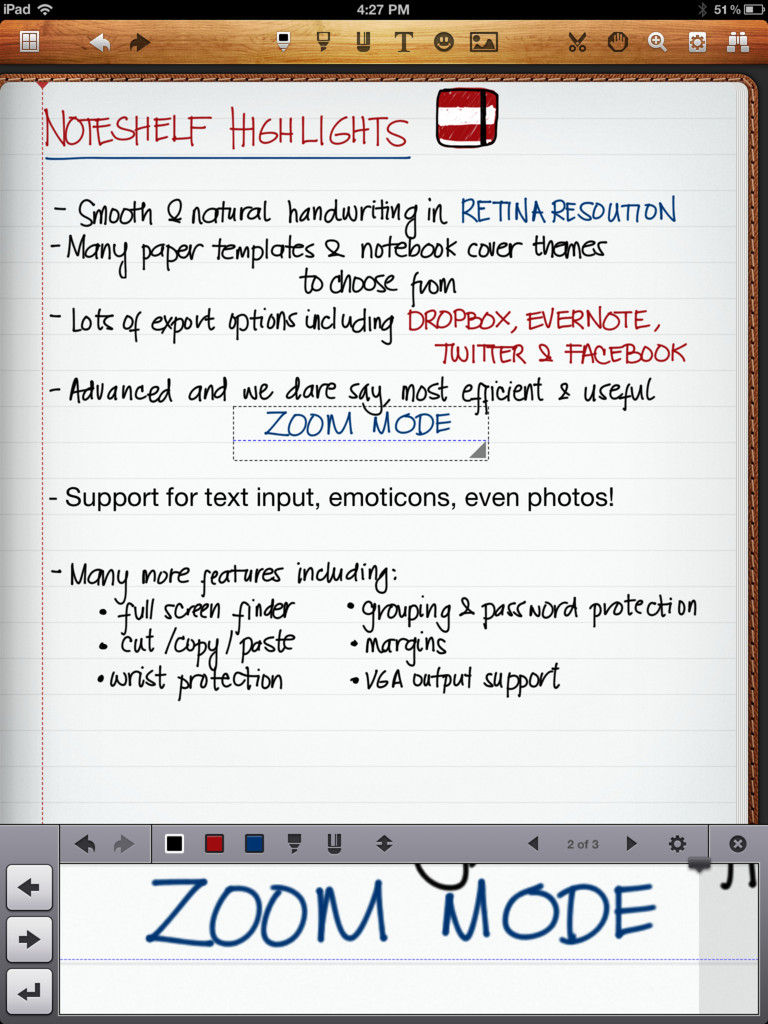 iPad 4:27 PM 51%
NOTESHELF HIGHLIGHTS
- Smooth & natural handwriting in RETINA RESOUTION
- Many paper templates & notebook cover themes
to choose from
- Lots of export options including DROPBOX, EVERNOTE,
TWITTER & FACEBOOK
- Advanced and we dare say, most efficient & useful
ZOOM MODE
- Support for text input, emoticons, even photos!
- Many more features including:
• full screen finder • grouping & password protection
• cut/copy/paste • margins
• wrist protection • VGA output support
2 of 3
ZOOM MODE